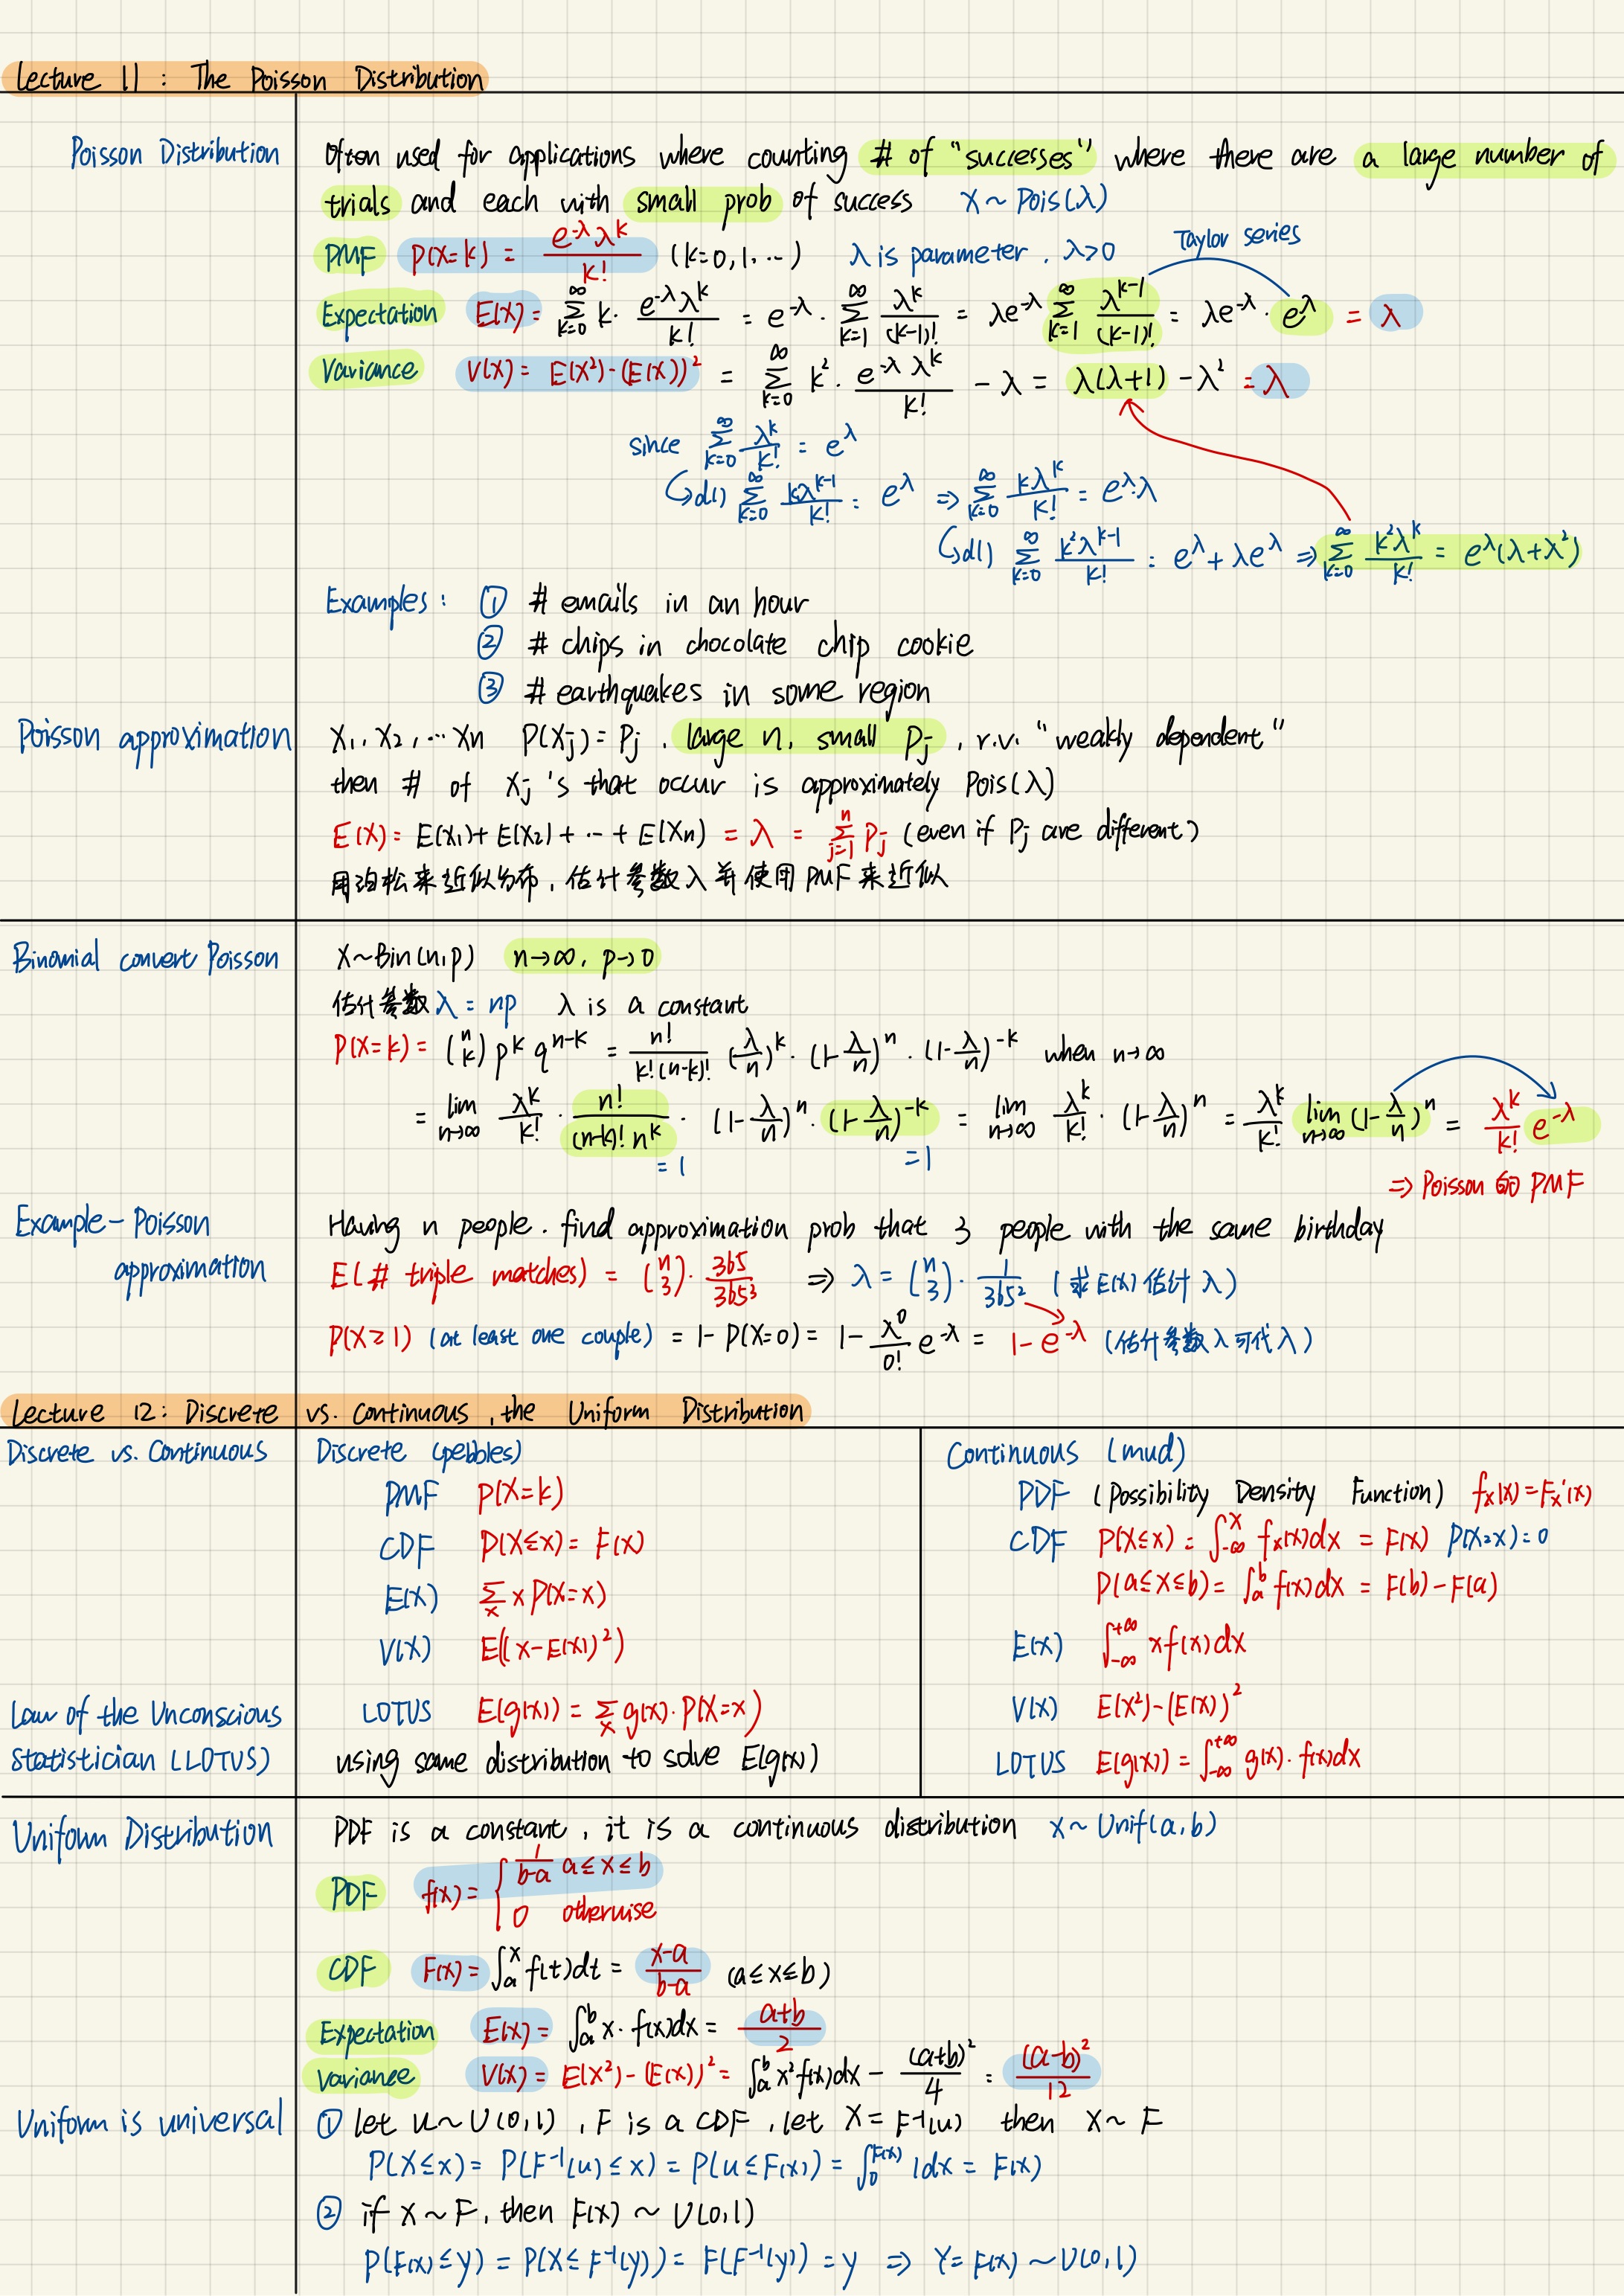 Lecture 11 : The Poisson Distribution
Poisson Distribution
Often used for applications where counting # of "successes" where there are a large number of
trials and each with small prob of success X ~ Pois(λ)
PMF P(X=k) = e^{-λ} λ^k / k! (k=0,1,...) λ is parameter, λ>0 Taylor series
Expectation E(X) = ∑_{k=0}^{∞} k · e^{-λ} λ^k / k! = e^{-λ} · ∑_{k=1}^{∞} λ^k / (k-1)! = λe^{-λ} ∑_{k=1}^{∞} λ^{k-1} / (k-1)! = λe^{-λ} · e^λ = λ
Variance V(X) = E(X²)-(E(X))² = ∑_{k=0}^{∞} k² · e^{-λ} λ^k / k! - λ = λ(λ+1) - λ² = λ
since ∑_{k=0}^{∞} λ^k / k! = e^λ
d() ∑_{k=0}^{∞} kλ^{k-1} / k! = e^λ ⇒ ∑_{k=0}^{∞} kλ^k / k! = e^λ·λ
d() ∑_{k=0}^{∞} k²λ^{k-1} / k! = e^λ + λe^λ ⇒ ∑_{k=0}^{∞} k²λ^k / k! = e^λ(λ+λ²)
Examples: ① # emails in an hour
② # chips in chocolate chip cookie
③ # earthquakes in some region
Poisson approximation
X₁, X₂, ... Xn P(Xj) = Pj, large n, small Pj, r.v. "weakly dependent"
then # of Xj 's that occur is approximately Pois(λ)
E(X) = E(X₁)+E(X₂)+ ... + E(Xn) = λ = ∑_{j=1}^{n} Pj (even if Pj are different)
用泊松来近似分布, 估计参数λ并使用PMF来近似
Binomial convert Poisson
X~Bin(n,p) n→∞, p→0
估计参数 λ = np λ is a constant
P(X=k) = (n k) p^k q^{n-k} = n! / k!(n-k)! (λ/n)^k · (1-λ/n)^n · (1-λ/n)^{-k} when n→∞
= lim_{n→∞} λ^k / k! · n! / (n-k)! n^k · (1-λ/n)^n · (1-λ/n)^{-k} = lim_{n→∞} λ^k / k! · (1-λ/n)^n = λ^k / k! lim_{n→∞} (1-λ/n)^n = λ^k / k! e^{-λ}
=1 =1
⇒ Poisson 的 PMF
Example - Poisson
approximation
Having n people. find approximation prob that 3 people with the same birthday
E(# triple matches) = (n 3) · 365 / 365³ ⇒ λ = (n 3) · 1 / 365² (求E(X)估计λ)
P(X≥1) (at least one couple) = 1- P(X=0) = 1- λ⁰ / 0! e^{-λ} = 1- e^{-λ} (估计参数λ可代入)
Lecture 12: Discrete vs. Continuous, the Uniform Distribution
Discrete vs. Continuous
Discrete (pebbles)
PMF P(X=k)
CDF P(X≤x) = F(x)
E(X) ∑_x x P(X=x)
V(X) E((X-E(X))²)
Law of the Unconscious
Statistician (LOTUS)
LOTUS E(g(x)) = ∑_x g(x)·P(X=x)
using same distribution to solve E(g(x))
Continuous (mud)
PDF (Possibility Density Function) f_X(x) = F_X'(x)
CDF P(X≤x) = ∫_{-∞}^{x} f_X(x)dx = F(x) P(X=x)=0
P(a≤X≤b) = ∫_a^b f(x)dx = F(b)-F(a)
E(X) ∫_{-∞}^{+∞} xf(x)dx
V(X) E(X²)-(E(X))²
LOTUS E(g(x)) = ∫_{-∞}^{+∞} g(x)·f(x)dx
Uniform Distribution
PDF is a constant, it is a continuous distribution X~Unif(a,b)
PDF f(x) = { 1 / b-a a≤x≤b
0 otherwise
CDF F(x) = ∫_a^x f(t)dt = x-a / b-a (a≤x≤b)
Expectation E(X) = ∫_a^b x·f(x)dx = a+b / 2
Variance V(X) = E(X²)-(E(X))² = ∫_a^b x²f(x)dx - (a+b)² / 4 = (a-b)² / 12
Uniform is universal
① let u~U(0,1), F is a CDF, let X = F⁻¹(u) then X~F
P(X≤x) = P(F⁻¹(u)≤x) = P(u≤F(x)) = ∫_0^{F(x)} 1dx = F(x)
② if X~F, then F(x) ~ U(0,1)
P(F(x)≤y) = P(X≤F⁻¹(y)) = F(F⁻¹(y)) = y ⇒ Y=F(x) ~U(0,1)